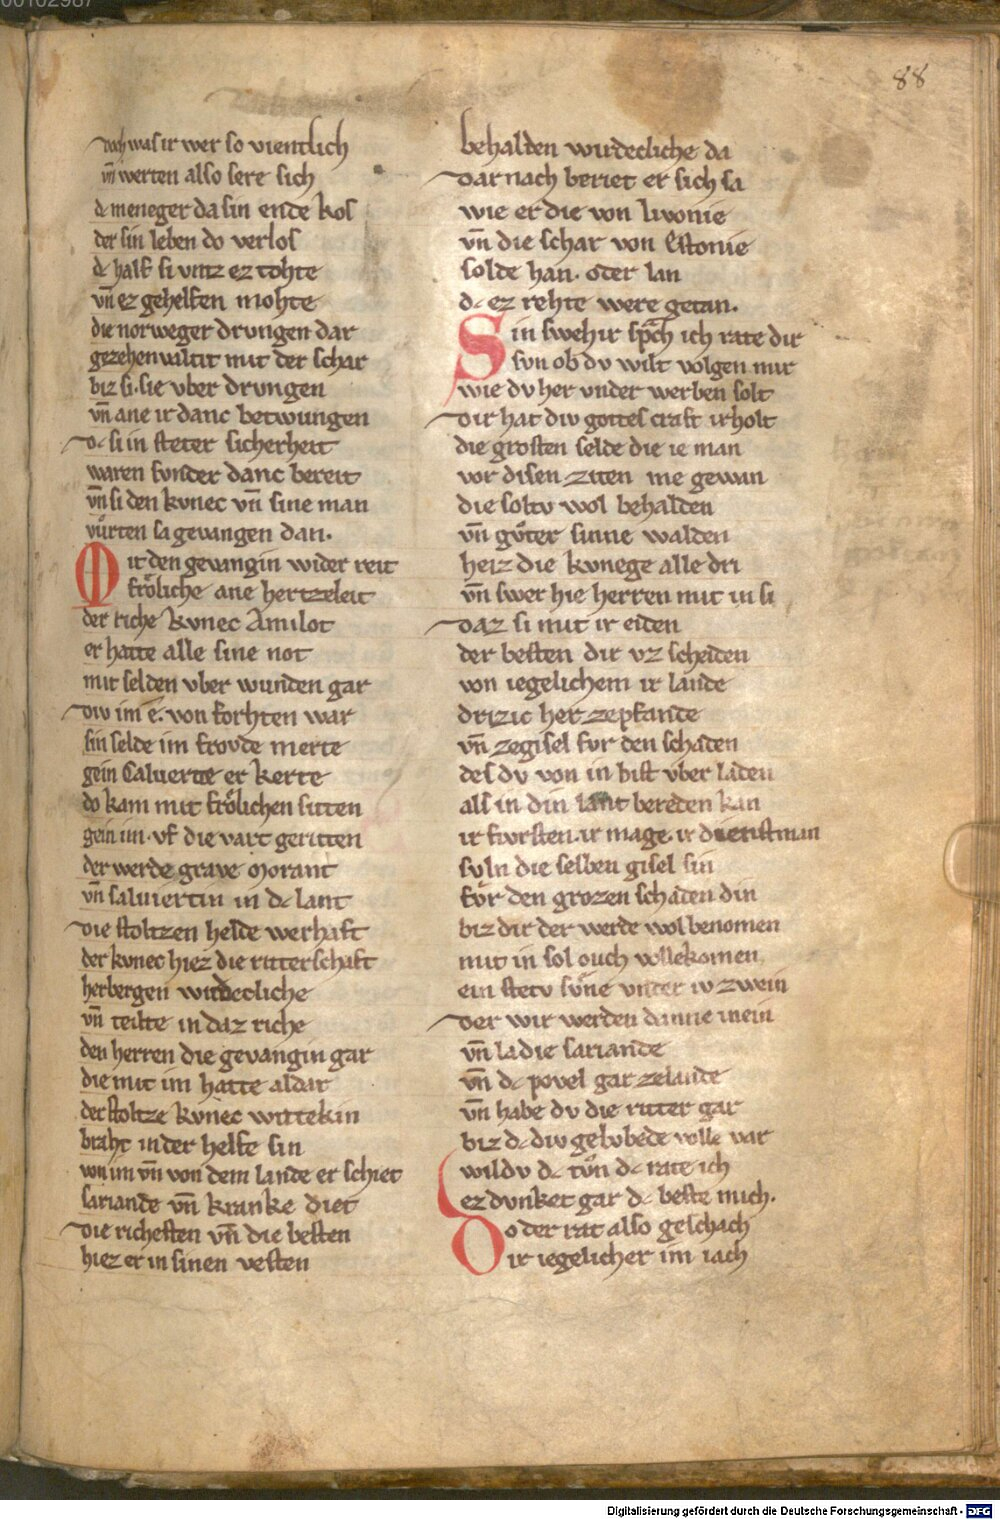 00102987
88
noch was ir wer so vientlich
vn̄ werten also sere sich
dˢ meneger da sin ende kos
der sin leben do verlos
dˢ half si vntz ez tohte
vn̄ ez gehelfen mohte
die norweger drungen dar
gezehen valtit mit der schar
biz si. sie vber drungen
vn̄ ane ir danc betwungen
dˢ si in steter sicherheit
waren sunder danc bereit
vn̄ si den kvnec vn̄ sine man
vuͦrten sa gevangen dan.
Mit den gevangin wider reit
froͤliche ane hertzeleit
der riche kvnec Amilot
er hatte alle sine not
mit selden vber wunden gar
div im ê. von forhten war
sin selde im frovde merte
gein Salverne er kerte
do kam mit froͤlichen sitten
gein im. vf die vart geritten
der werde grave Morant
vn̄ salviertin in dˢ lant
die stoltzen helde werhaft
der kvnec hiez die ritterschaft
herbergen wirdecliche
vn̄ teilte in daz riche
den herren die gevangin gar
die mit im hatte aldar
der stoltze kvnec wittekin
braht in der helfe sin
von im vn̄ von dem lande er schiet
sariande vn̄ kranke diet
die richesten vn̄ die besten
hiez er in sinen vesten
behalden wirdecliche da
dar nach beriet er sich sa
wie er die von livonie
vn̄ die schar von Estonie
solde han. oder lan
dˢ ez rehte were getan.
Sin sweh ir sprach ich rate dir
svn ob dv wilt volgen mir
wie dv her vnder werben solt
dir hat div gottes craft irholt
die grosten selde die ie man
vor disen ziten nie gewan
die soltv wol behalden
vn̄ guͦter sinne walden
heiz die kvnege alle dri
vn̄ swer hie herren mit in si
daz si mit ir eiden
der besten dir vz scheiden
von iegelichem ir lande
drizic her zepfande
vn̄ zegisel fvr den schaden
des dv von in bist vber laden
als in din lant bereden kan
ir fvrsten. ir mage. ir dienstman
svln die selben gisel sin
fvͤr den grozen schaden din
biz dir der werde wol benomen
mit in sol ouch vollekomen
ein stetv svͦne vnter iv zwein
der wir werden danne inein
vn̄ la die sariande
vn̄ dˢ povel gar zelande
vn̄ habe dv die ritter gar
biz dˢ div gelvbede volle var
wildv dˢ tvͦn dˢ rate ich
ez dvnket gar dˢ beste mich.
Do der rat also geschach
ir iegelicher im iach
Digitalisierung gefördert durch die Deutsche Forschungsgemeinschaft - DFG